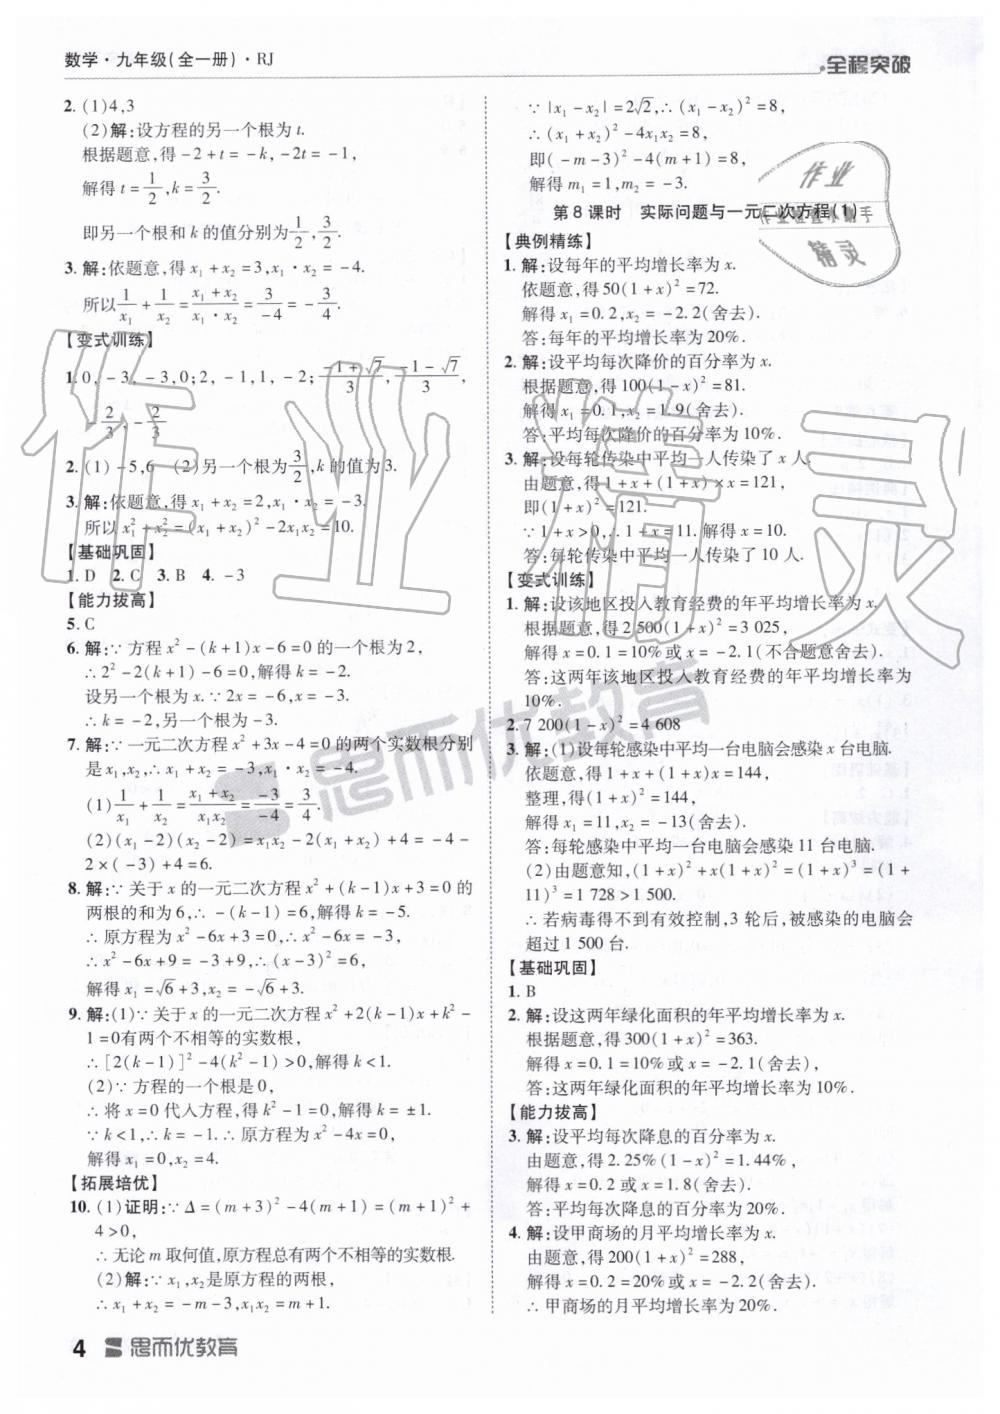 数学·九年级(全一册)·RJ
全程突破
2. (1)4,3
(2)解:设方程的另一个根为t.
根据题意,得-2+t=-k,-2t=-1,
解得t=1/2,k=3/2.
即另一个根和k的值分别为1/2,3/2.
3. 解:依题意,得x₁+x₂=3,x₁·x₂=-4.
所以1/x₁+1/x₂=(x₁+x₂)/(x₁·x₂)=3/-4=-3/4.
【变式训练】
1. 0,-3,-3,0;2,-1,1,-2;(-1+√7)/3,(-1-√7)/3,
-2/3,-2/3
2. (1)-5,6 (2)另一个根为3/2,k的值为3.
3. 解:依题意,得x₁+x₂=2,x₁·x₂=-3.
所以x₁²+x₂²=(x₁+x₂)²-2x₁x₂=10.
【基础巩固】
1. D 2. C 3. B 4. -3
【能力拔高】
5. C
6. 解:∵方程x²-(k+1)x-6=0的一个根为2,
∴2²-2(k+1)-6=0,解得k=-2.
设另一个根为x.∵2x=-6,x=-3.
∴k=-2,另一个根为-3.
7. 解:∵一元二次方程x²+3x-4=0的两个实数根分别
是x₁,x₂,∴x₁+x₂=-3,x₁·x₂=-4.
(1)1/x₁+1/x₂=(x₁+x₂)/(x₁x₂)=-3/-4=3/4.
(2)(x₁-2)(x₂-2)=x₁x₂-2(x₁+x₂)+4=-4-
2×(-3)+4=6.
8. 解:∵关于x的一元二次方程x²+(k-1)x+3=0的
两根的和为6,∴-(k-1)=6,解得k=-5.
∴原方程为x²-6x+3=0,∴x²-6x=-3,
∴x²-6x+9=-3+9,∴(x-3)²=6,
解得x₁=√6+3,x₂=-√6+3.
9. 解:(1)∵关于x的一元二次方程x²+2(k-1)x+k²-
1=0有两个不相等的实数根,
∴[2(k-1)]²-4(k²-1)>0,解得k<1.
(2)∵方程的一个根是0,
∴将x=0代入方程,得k²-1=0,解得k=±1.
∵k<1,∴k=-1.∴原方程为x²-4x=0,
解得x₁=0,x₂=4.
【拓展培优】
10. (1)证明:∵Δ=(m+3)²-4(m+1)=(m+1)²+
4>0,
∴无论m取何值,原方程总有两个不相等的实数根.
(2)解:∵x₁,x₂是原方程的两根,
∴x₁+x₂=-m-3,x₁x₂=m+1.
∵|x₁-x₂|=2√2,∴(x₁-x₂)²=8,
∴(x₁+x₂)²-4x₁x₂=8,
即(-m-3)²-4(m+1)=8,
解得m₁=1,m₂=-3.
第8课时 实际问题与一元二次方程(1)
【典例精练】
1. 解:设每年的平均增长率为x.
依题意,得50(1+x)²=72.
解得x₁=0.2,x₂=-2.2(舍去).
答:每年的平均增长率为20%.
2. 解:设平均每次降价的百分率为x.
根据题意,得100(1-x)²=81.
解得x₁=0.1,x₂=1.9(舍去).
答:平均每次降价的百分率为10%.
3. 解:设每轮传染中平均一人传染了x人.
由题意,得1+x+(1+x)×x=121,
即(1+x)²=121.
∵1+x>0,∴1+x=11.解得x=10.
答:每轮传染中平均一人传染了10人.
【变式训练】
1. 解:设该地区投入教育经费的年平均增长率为x.
根据题意,得2 500(1+x)²=3 025,
解得x=0.1=10%或x=-2.1(不合题意舍去).
答:这两年该地区投入教育经费的年平均增长率为
10%.
2. 7 200(1-x)²=4 608
3. 解:(1)设每轮感染中平均一台电脑会感染x台电脑.
依题意,得1+x+(1+x)x=144,
整理,得(1+x)²=144,
解得x₁=11,x₂=-13(舍去).
答:每轮感染中平均一台电脑会感染11台电脑.
(2)由题意知,(1+x)²+x(1+x)²=(1+x)³=(1+
11)³=1 728>1 500.
∴若病毒得不到有效控制,3轮后,被感染的电脑会
超过1 500台.
【基础巩固】
1. B
2. 解:设这两年绿化面积的年平均增长率为x.
根据题意,得300(1+x)²=363.
解得x=0.1=10%或x=-2.1(舍去),
答:这两年绿化面积的年平均增长率为10%.
【能力拔高】
3. 解:设平均每次降息的百分率为x.
由题意,得2.25%(1-x)²=1.44%,
解得x=0.2或x=1.8(舍去).
答:平均每次降息的百分率为20%.
4. 解:设甲商场的月平均增长率为x.
由题意,得200(1+x)²=288,
解得x=0.2=20%或x=-2.2(舍去).
∴甲商场的月平均增长率为20%.
作业
精灵
作业精灵
思而优教育
4 思而优教育